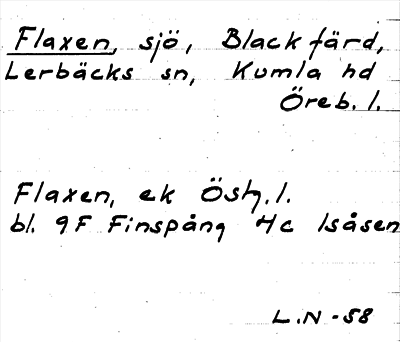 Flaxen, sjö, Blackfärd,
Lerbäcks sn, Kumla hd
Öreb. l.
Flaxen, ek Östg. l.
bl. 9F Finspång 4c Isåsen
L.N -58